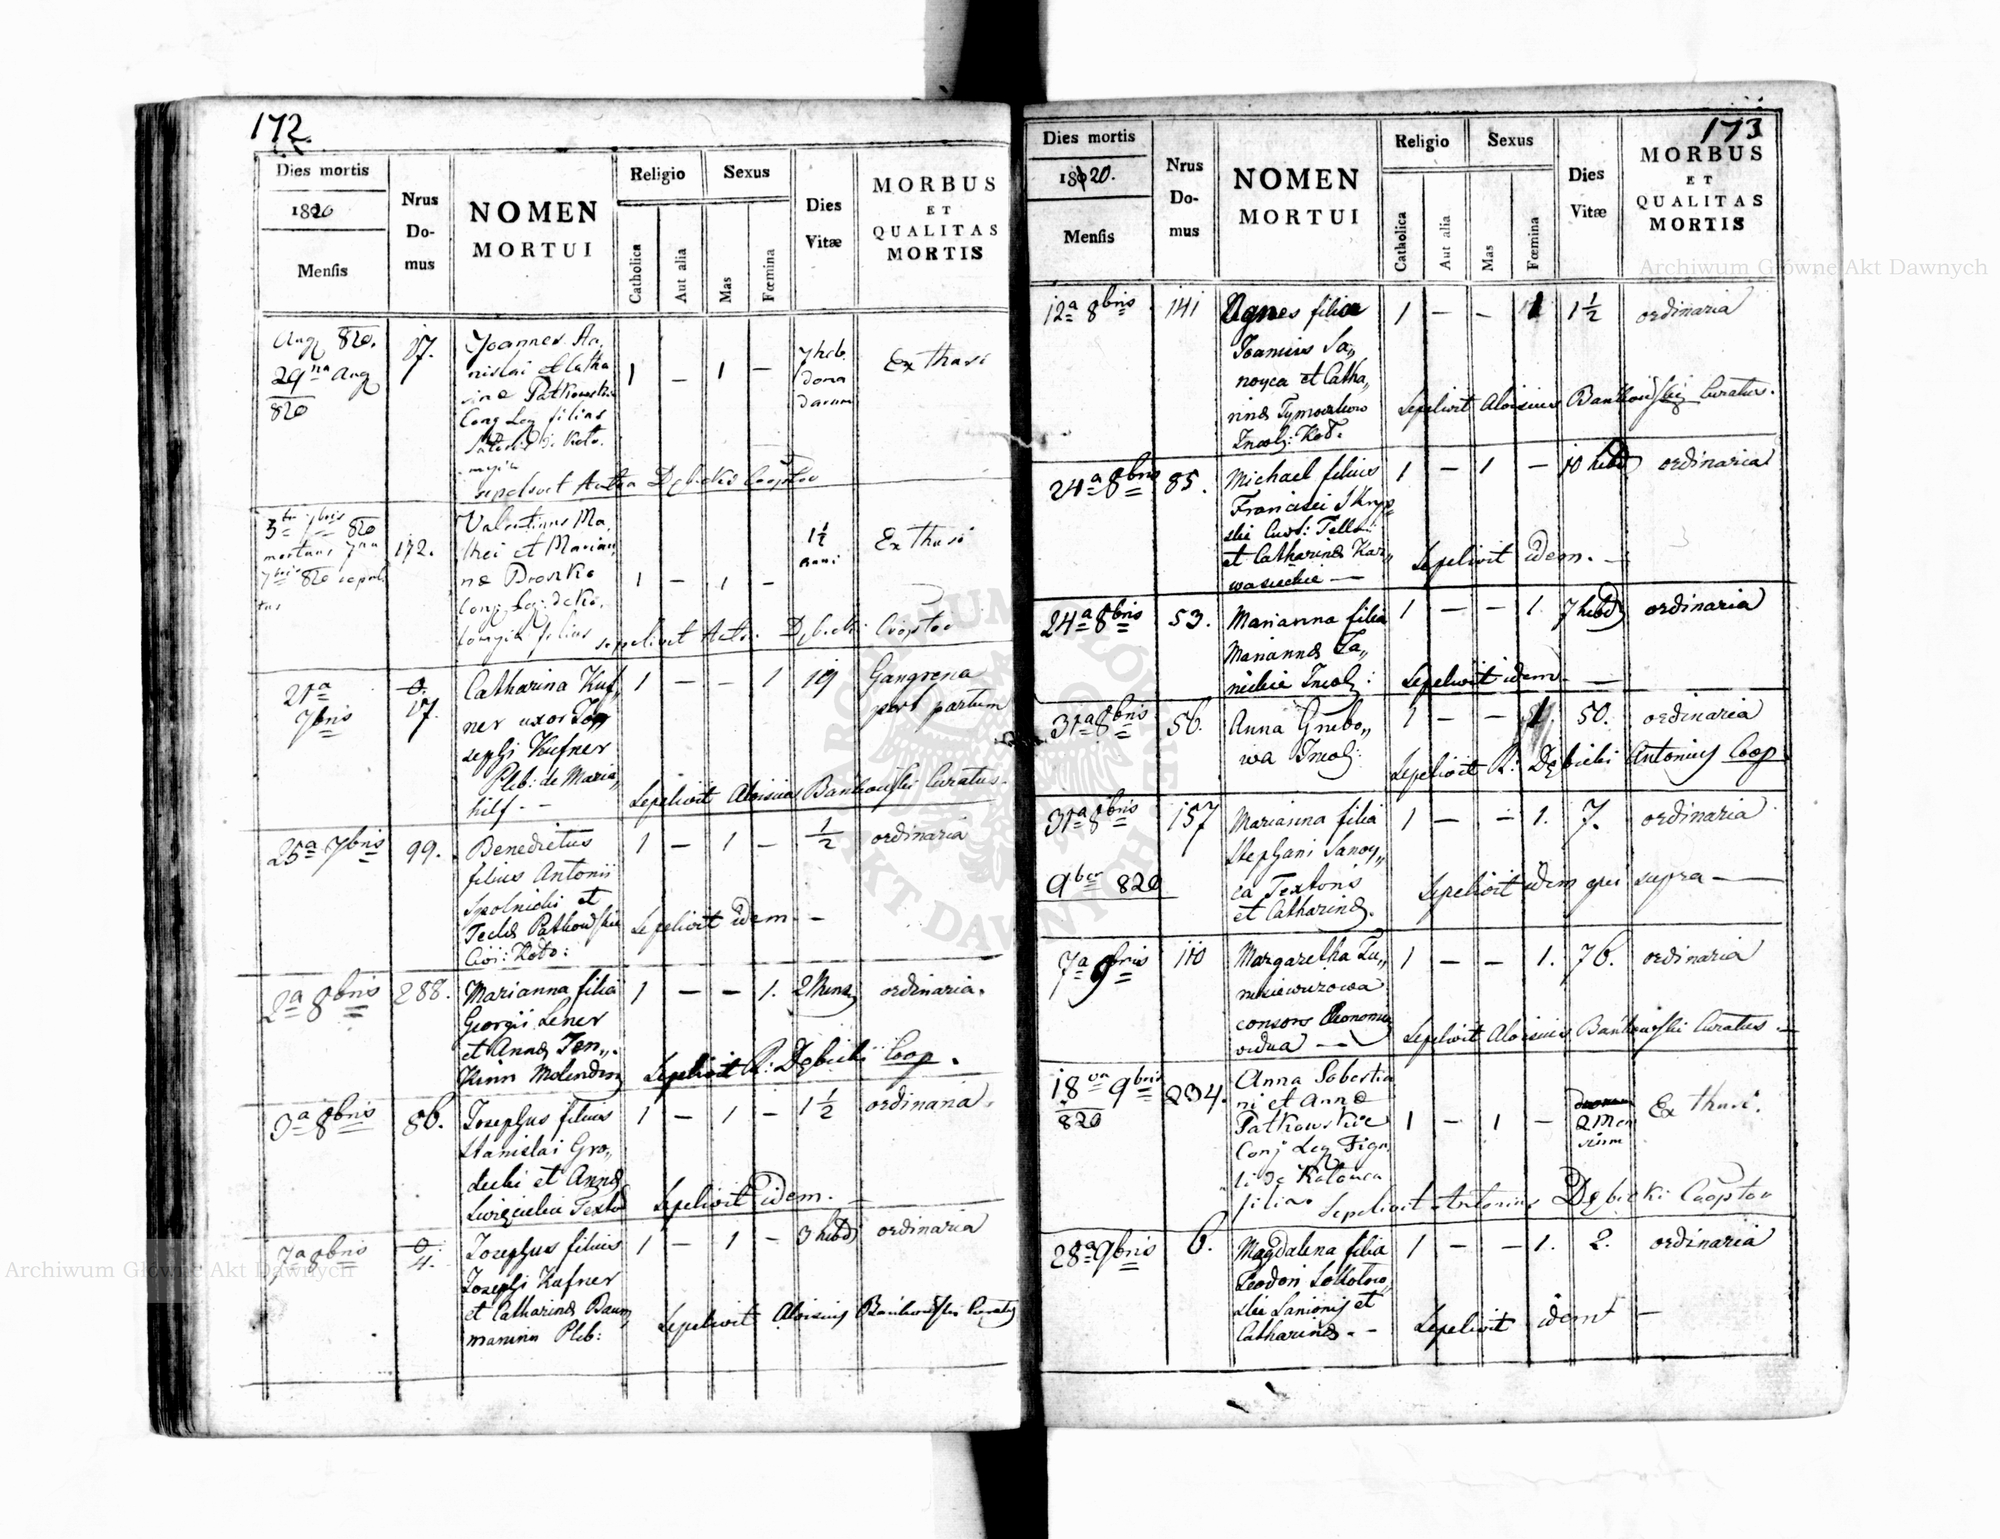 172.
Dies mortis
1820
Mensis
Nrus
Do-
mus
NOMEN
MORTUI
Religio
Catholica
Aut alia
Sexus
Mas
Fœmina
Dies
Vitæ
MORBUS
ET
QUALITAS
MORTIS
Aug 820.
29na Aug
820
17.
Joannes Sta,
nislai et Catha
rinæ Patkowskie
Conj Leg filius
1 – 1 –
7 heb
doma
darum
Ex thusi
sepelivit Dębicki Cooptor
7bris 820
172.
Valentinus Ma,
thei et Marian,
næ Proszko
filius
1 – 1 –
1½
anni
Ex thusi
sepelivit Ant. Dębicki Cooptor
21a
7bris
0.
17.
Catharina Kuf,,
ner uxor Jo,,
sephi Kufner
Pleb: de Maria,,
hilf. –
1 – – 1
19
Gangrena
post partum
Sepelivit Aloisius Bańkowski Curatus.
25a 7bris
99.
Benedictus
filius Antonii
Smolnicki et
Teclæ Patkowskie
Civi: Koło:
1 – 1 –
½
ordinaria
Sepelivit idem –
2a 8bris
288.
Marianna filia
Georgii Lener
et Annæ Ten,,
Kinn Molendin
1 – – 1.
2 Mens
ordinaria.
Sepelivit R: Dębicki Coop.
3a 8bris
86.
Josephus filius
Stanislai Gro,,
decki et Annæ
1 – 1 –
1½
ordinaria.
Sepelivit idem.
7a 8bris
0.
4.
Josephus filius
Josephi Kufner
et Catharinæ Baum,,
mannin Pleb:
1 – 1 –
3 hebd
ordinaria
Sepelivit Aloisius Bańkowski Curatus
173
Dies mortis
1820.
Mensis
Nrus
Do-
mus
NOMEN
MORTUI
Religio
Catholica
Aut alia
Sexus
Mas
Fœmina
Dies
Vitæ
MORBUS
ET
QUALITAS
MORTIS
12a 8bris
141
Agnes filia
Joannis Sa,,
noyca et Catha,,
rinæ
Incol: Koł.
1 – – 1
1½
ordinaria
Sepelivit Aloisius Bańkowski Curatus.
24a 8bris
85.
Michael filius
Francisci Skryp,,
et Catharinæ Kar,,
wasieckie –
1 – 1 –
10 hebd
ordinaria
Sepelivit idem. –
24a 8bris
53.
Marianna filia
Mariannæ Ja,,
nickie Incol:
1 – – 1.
7 hebd
ordinaria
Sepelivit idem –
31a 8bris
56.
Anna Grubo,,
wa Incol:
1 – – 1.
50.
ordinaria
Sepelivit R: Dębicki Antonius Coop.
31a 8bris
157
Marianna filia
Stephani Sanoy,,
ca Textoris
et Catharinæ.
1 – – 1.
7.
ordinaria
Sepelivit idem qui supra –
9ber 820
7a 9bris
110
Margaretha
consors
vidua –
1 – – 1.
76.
ordinaria
Sepelivit Aloisius Bańkowski Curatus –
18va 9bris
820
234.
Anna Sebestia
ni et Annæ
Patkowskie
Conj Leg Figu
li de
filia
1 – 1 –
2 Men
sium
Ex thusi.
Sepelivit Antonius Dębicki Cooptor
28a 9bris
6.
Magdalena filia
Teodori Sokołow,,
skie et
Catharinæ. –
1 – – 1.
2.
ordinaria
Sepelivit idem –
Archiwum Główne Akt Dawnych
Archiwum Główne Akt Dawnych
ARCHIWUM GŁÓWNE AKT DAWNYCH